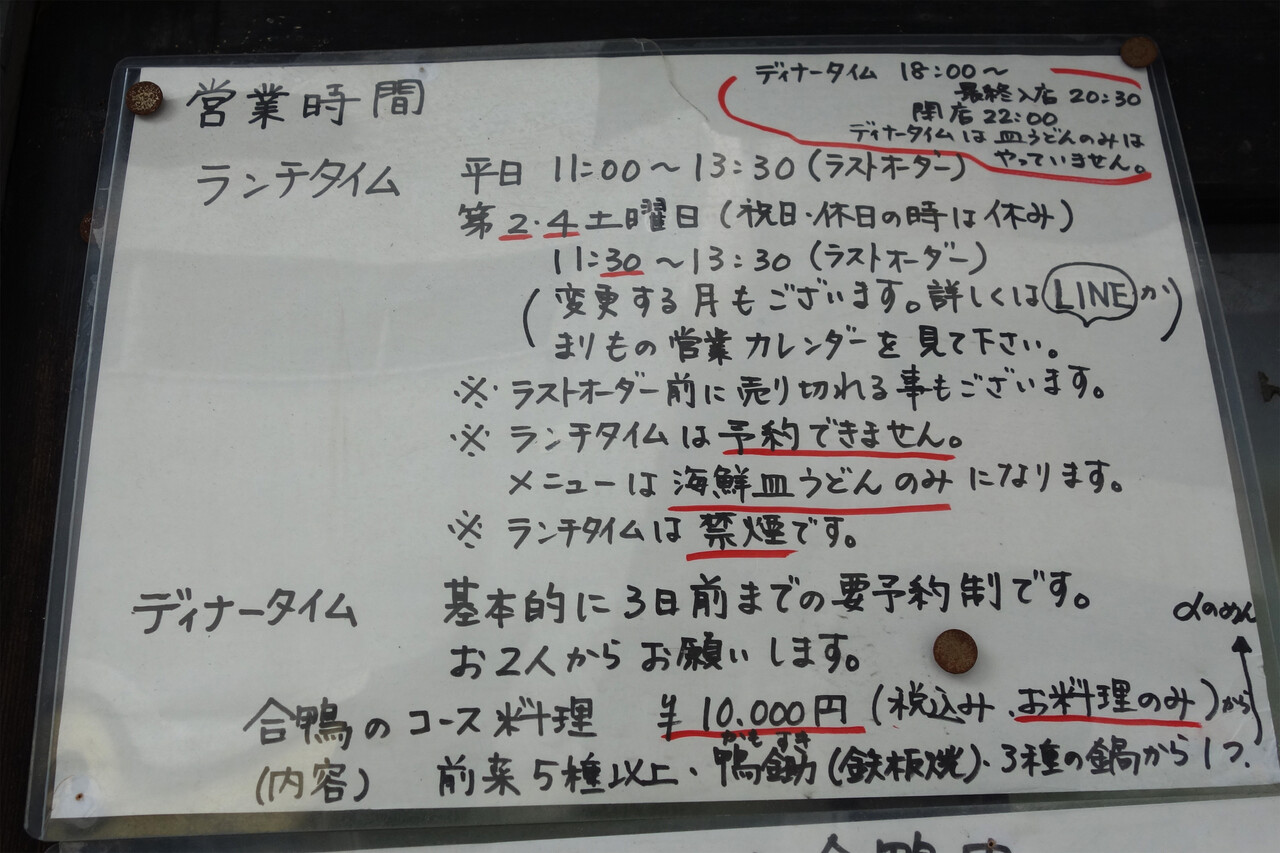 営業時間
ディナータイム 18:00〜
最終入店 20:30
閉店 22:00
ディナータイムは皿うどんのみは
やっていません。
ランチタイム 平日 11:00〜13:30(ラストオーダー)
第2・4土曜日(祝日・休日の時は休み)
11:30〜13:30(ラストオーダー)
(変更する月もございます。詳しくはLINEか
まりもの営業カレンダーを見て下さい。)
※ラストオーダー前に売り切れる事もございます。
※ランチタイムは予約できません。
メニューは海鮮皿うどんのみになります。
※ランチタイムは禁煙です。
ディナータイム 基本的に3日前までの要予約制です。
お2人からお願いします。
合鴨のコース料理 ¥10.000円(税込み、お料理のみ)から
(内容) 前菜5種以上・鴨鋤(鉄板焼)・3種の鍋から1つ、
かも すき
〆のめん